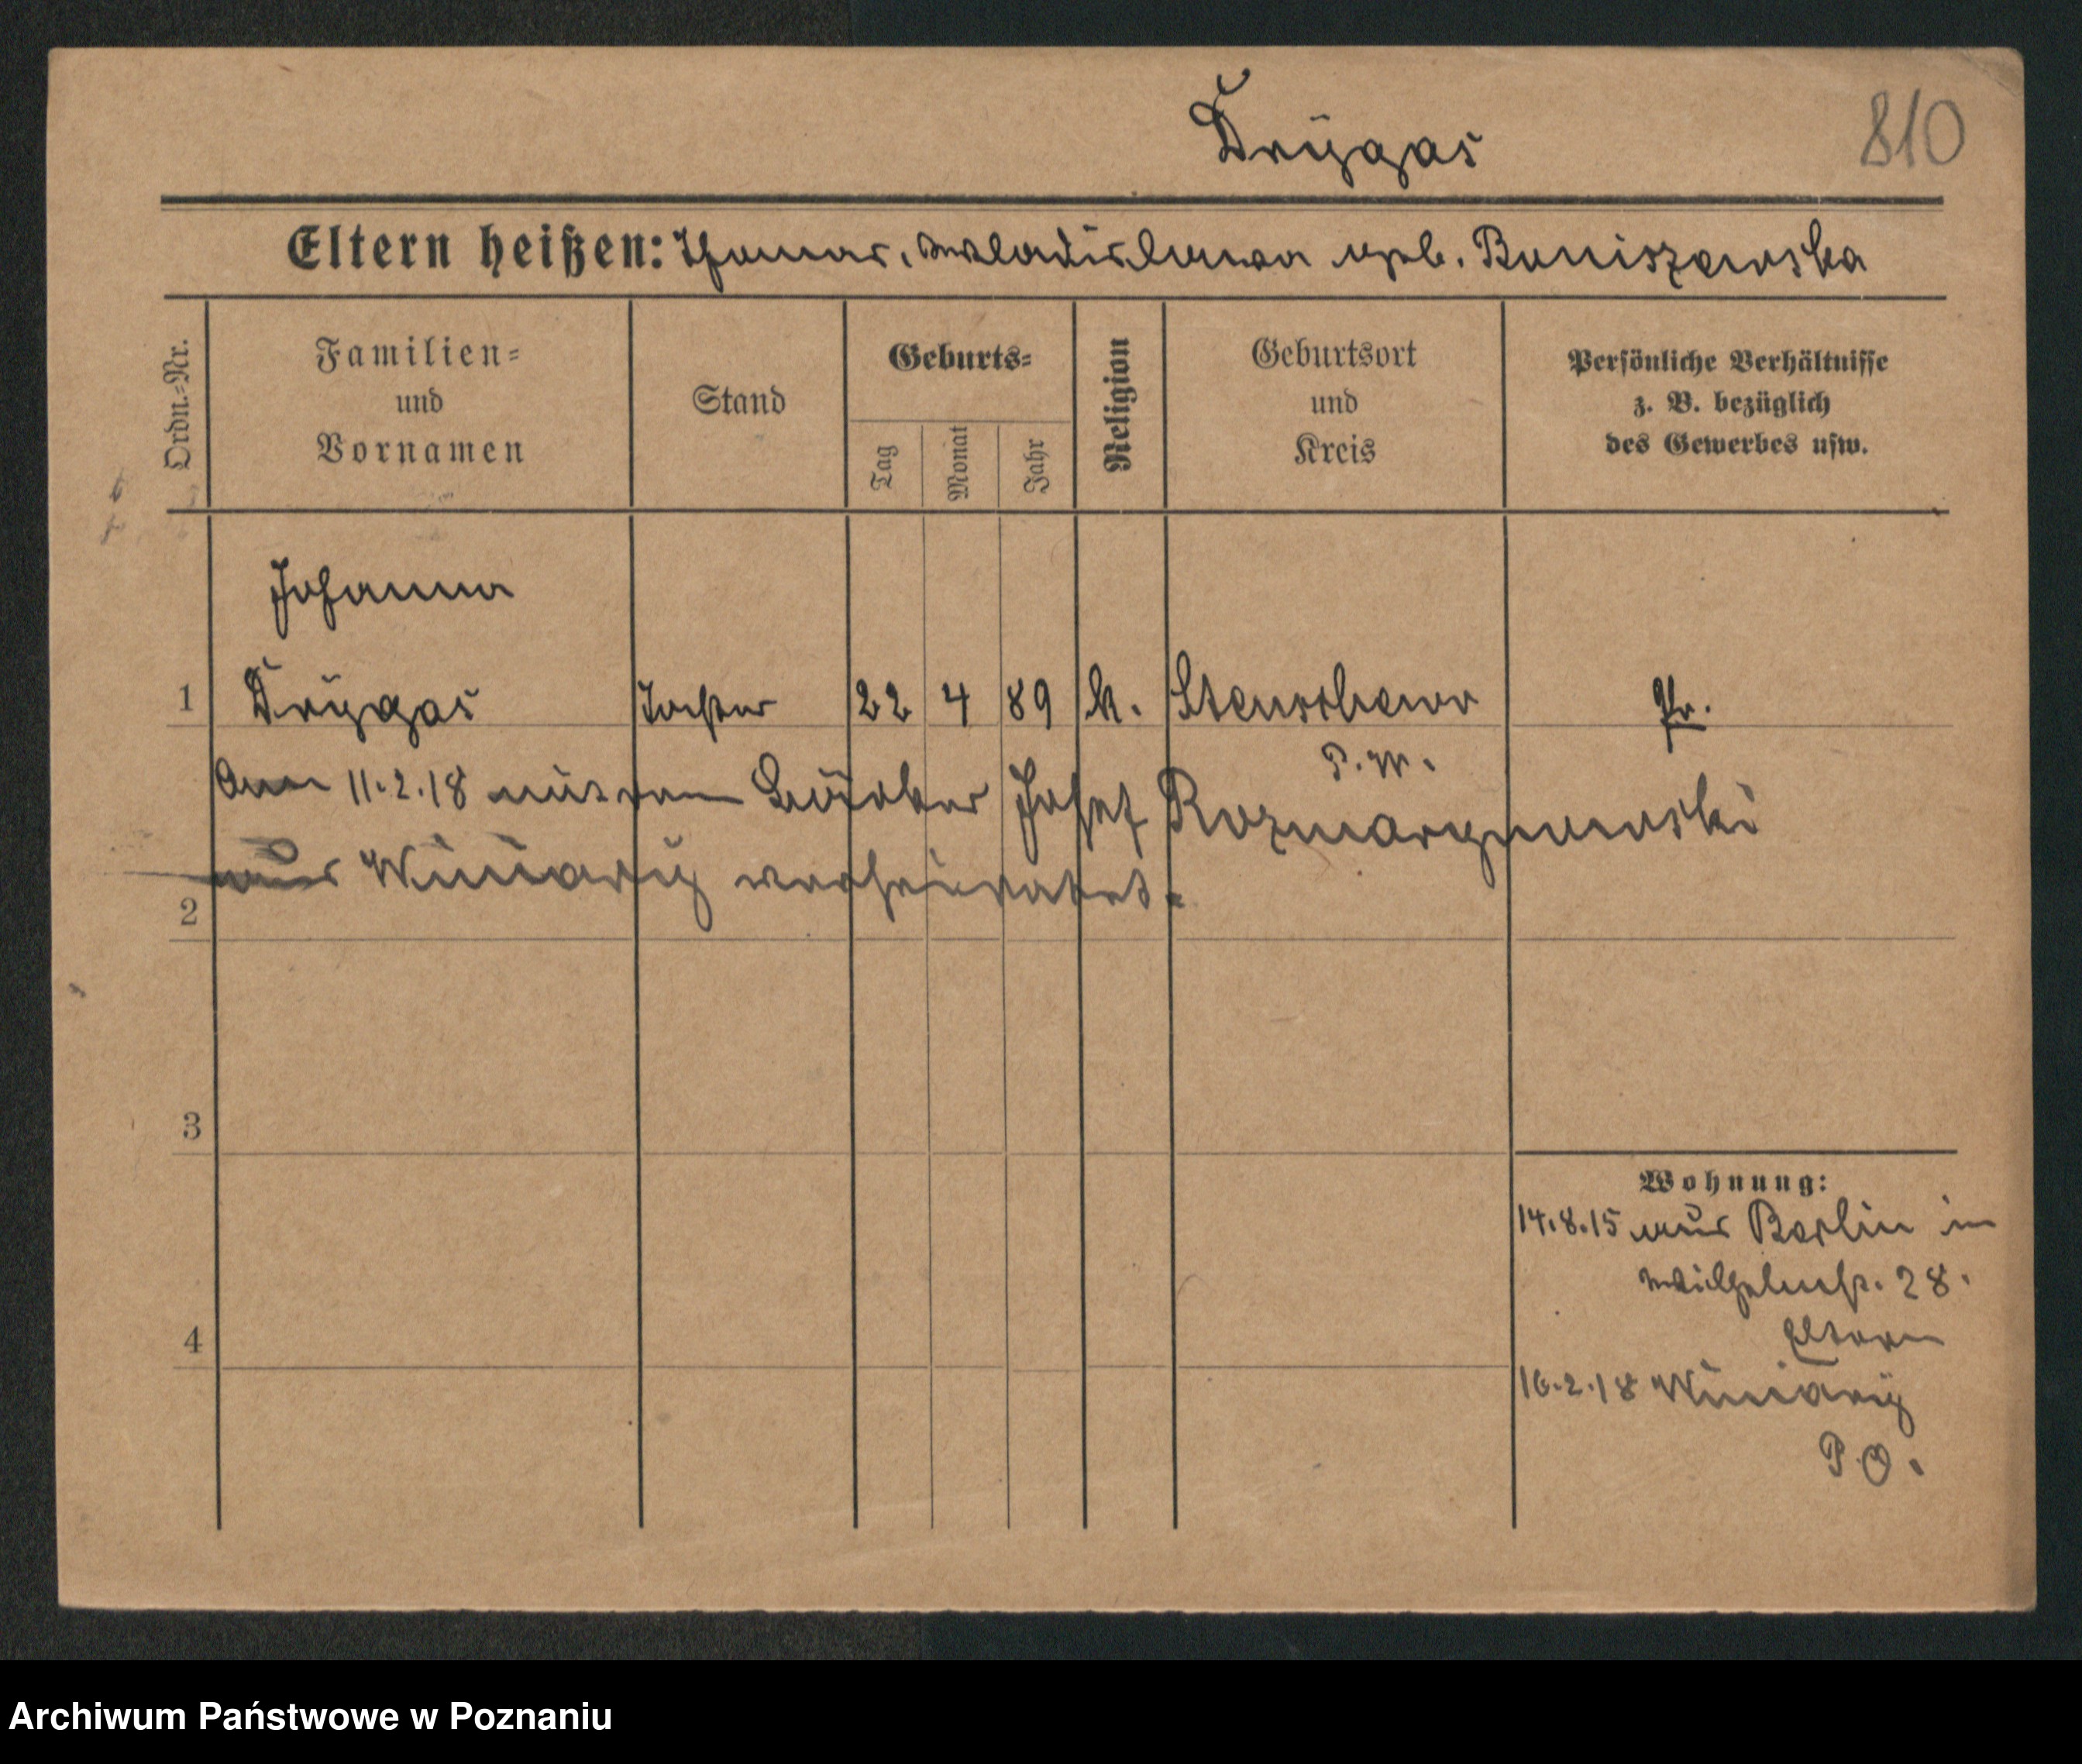 Dryggas
810
Eltern heißen: Thomas, Wladislawa geb. Boniszewska
Ordn.-Nr.
Familien-
und
Vornamen
Stand
Geburts-
Tag
Monat
Jahr
Religion
Geburtsort
und
Kreis
Persönliche Verhältnisse
z. B. bezüglich
des Gewerbes usw.
Johanna
1 Dryggas Tochter 22 4 89 k. Stenschewo Pr.
P. W.
Am 11.2.18 mit dem Josef Rozmarynowski
aus Winiary verheiratet.
2
3
4
Wohnung:
14.8.15 aus Berlin in
Wilhelmstr. 28.
Eltern
16.2.18 Winiary
P. O.
Archiwum Państwowe w Poznaniu